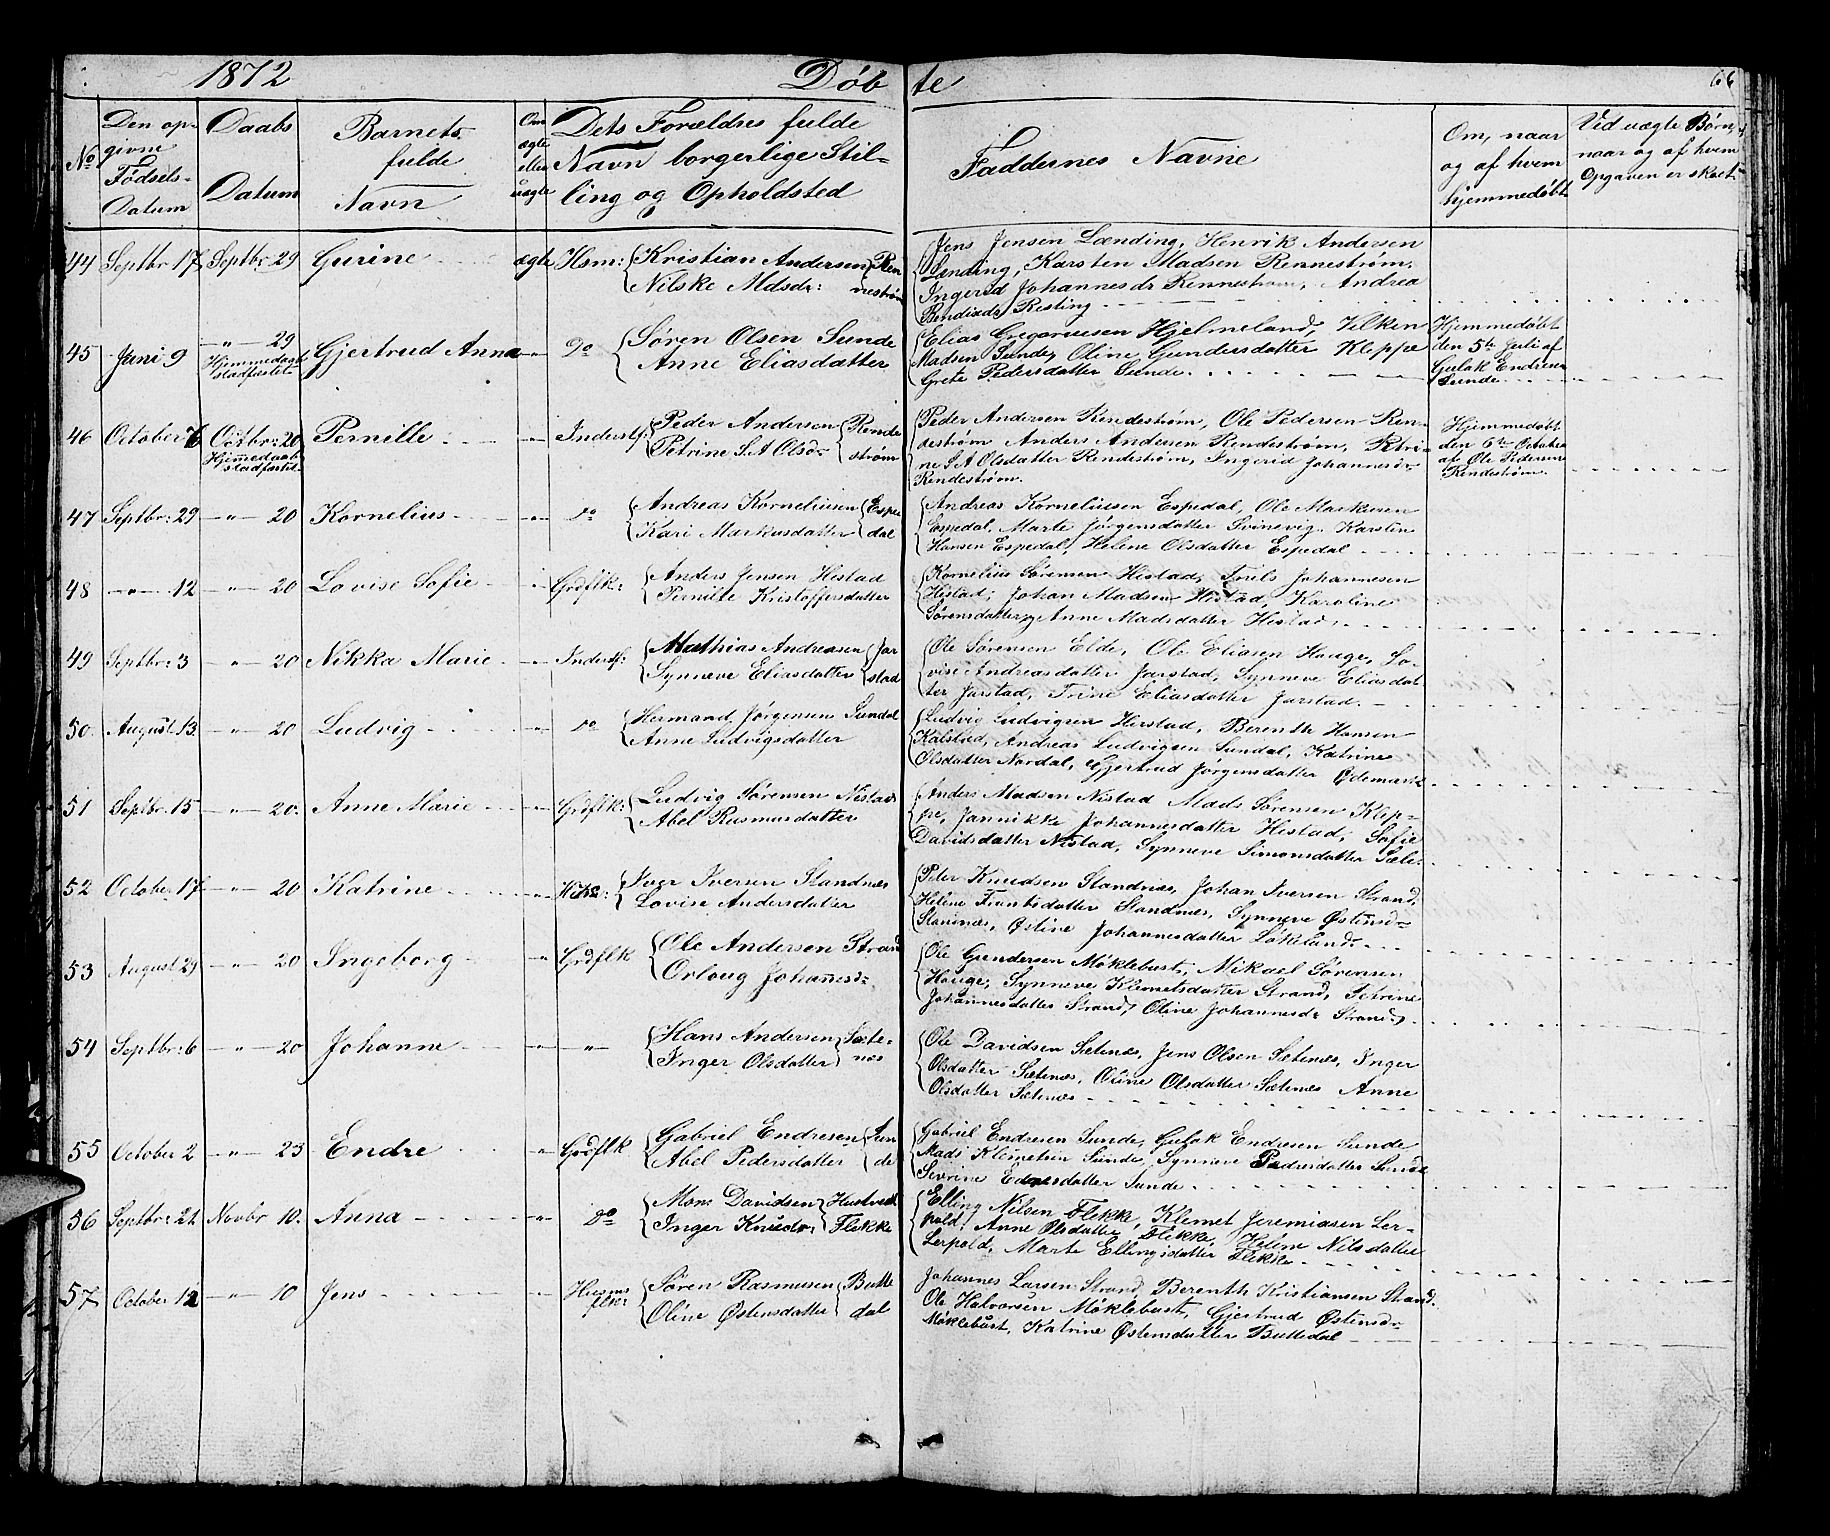 1872 Døbte 66
No
Den opgivne Fødsels-Datum
Daabs Datum
Barnets fulde Navn
Om ægte eller uægte
Dets Forældres fulde Navn borgerlige Stilling og Opholdsted
Faddernes Navne
Om, naar og af hvem hjemmedøbt
Ved uægte Børn, naar og af hvem Opgaven er skeet
44 Septbr 17 Septbr 29 Gurine ægte Hsm: Kristian Andersen Ren
Nilske Mdsdr: nestrøm
Jens Jensen Lænding, Henrik Andersen
Lænding, Karsten Madsen Rennestrøm.
Ingerid Johannesdr Rennestrøm, Andrea
Bendiadr Risting
45 Juni 9 -"- 29 Gjertrud Anna -"- Do Søren Olsen Sunde
Hjemmedaab stadfæstet
Anne Eliasdatter
Elias Gregoriusen Hjelmeland, Vilken
Madsen Sunde, Oline Gundersdatter Kleppe
Grete Pedersdatter Sunde
Hjemmedøbt
den 5te Juli af
Gulak Endresen
Sunde
46 October 6 Octbr: 20 Pernille -"- Inderstf: Peder Andersen Rende
Hjemmedaab stadfæstet
Petrine S.A Olsdr strøm
Peder Andersen Rendestrøm, Ole Pedersen Ren-
destrøm Anders Andersen Rendestrøm, Petri-
ne S.A Olsdatter Rendestrøm, Ingerid Johannesdr
Rendestrøm.
Hjemmedøbt
den 6te October
af Ole Pedersen
Rendestrøm.
47 Septbr: 29 -"- 20 Kornelius -"- do Andreas Korneliusen Espe
Kari Markusdatter dal
Andreas Korneliusen Espedal, Ole Markusen
Espedal, Marte Jørgensdatter Svinevig. Karsten
Hansen Espedal, Helene Olsdatter Espedal
48 -"- 12 -"- 20 Lovise Sofie -"- Grdflk: Anders Jensen Histad
Pernille Kristoffersdatter
Kornelius Sørensen Histad, Johannesen
Histad, Johan Madsen Histad, Karoline
Sørensdatter, Anne Madsdatter Histad
49 Septbr: 3 -"- 20 Nikka Marie -"- Inderstf: Mathias Andreasen Jar
Synneve Eliasdatter stad
Ole Sørensen Elde, Ole Eliasen Hauge, Lo-
vise Andreasdatter Jarstad, Synneve Eliasdat
ter Jarstad, Trine Eliasdatter Jarstad.
50 August 13 -"- 20 Ludvig -"- do Hermand Jørgensen Sundal
Anne Ludvigsdatter
Ludvig Ludvigsen Herstad, Berenth Hansen
Kalstad, Andreas Ludvigsen Sundal, Katrine
Olsdatter Nordal, Gjertrud Jørgensdatter Ødemark
51 Septbr: 15 -"- 20. Anne Marie -"- Grdflk: Ludvig Sørensen Nistad
Abel Rasmusdatter
Anders Madsen Nistad Mads Sørensen Klep-
pe, Jannikke Johannesdatter Histad, Sofie
Davidsdatter Nistad, Synneve Simonsdatter Sæle
52 October 17 -"- 20 Katrine -"- Iver Iversen Standnæs
Lovise Andersdatter
Peter Knudsen Standnæs, Johan Iversen Strand,
Helene Frantsdatter Standnæs, Synneve Østensdr
Standnæs, Østine Johannesdatter Løkeland
53 August 29 -"- 20 Ingeborg -"- Grdflk Ole Andersen Strand
Orlaug Johannesdr
Ole Gundersen Møklebust, Mikael Sørensen
Hauge, Synneve Klemetsdatter Strand, Petrine
Johannesdatter Strand, Oline Johannesdr Strand
54 Septbr: 6 -"- 20 Johanne -"- -"- Hans Andersen Sæte-
Inger Olsdatter næs
Ole Davidsen Sætenæs, Jens Olsen Sætenæs, Inger
Olsdatter Sætenæs, Oline Olsdatter Sætenæs Anne
Olsdatter Sætenæs
55 October 2 -"- 23 Endre -"- Grdflk Gabriel Endresen Sun
Abel Pedersdatter de
Gabriel Endresen Sunde, Gulak Endresen Sunde
Mads Klemetsen Sunde, Synneve Pedersdatter Sunde
Severine Endresdatter Sunde
56 Septbr: 21 Novbr 10. Anna -"- do Mons Davidsen
Inger Knudsdr Flekke
Elling Nilsen Flekke, Klemet Jeremiasen Ler-
pold, Anne Olsdatter Flekke, Helene Nilsdatter
Lerpold, Marte Ellingsdatter Flekke
57 October 12 -"- 10 Jens -"- Husms flk: Søren Rasmusen Butte
Oline Østensdatter dal
Johannes Larsen Strand, Berenth Kristiansen Strand.
Ole Halvorsen Møklebust, Gjertrud Østensdr
Møklebust, Katrine Østensdatter Buttedal